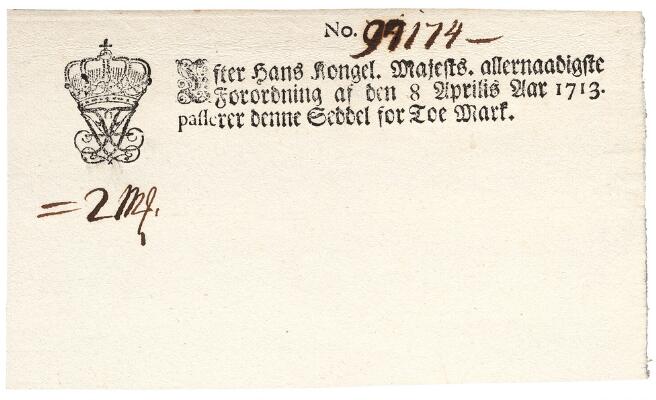 No. 99174 —
Efter Hans Kongel. Majests. allernaadigste
Forordning af den 8 Aprilis Aar 1713.
passerer denne Seddel for Toe Mark.
= 2 Mk.